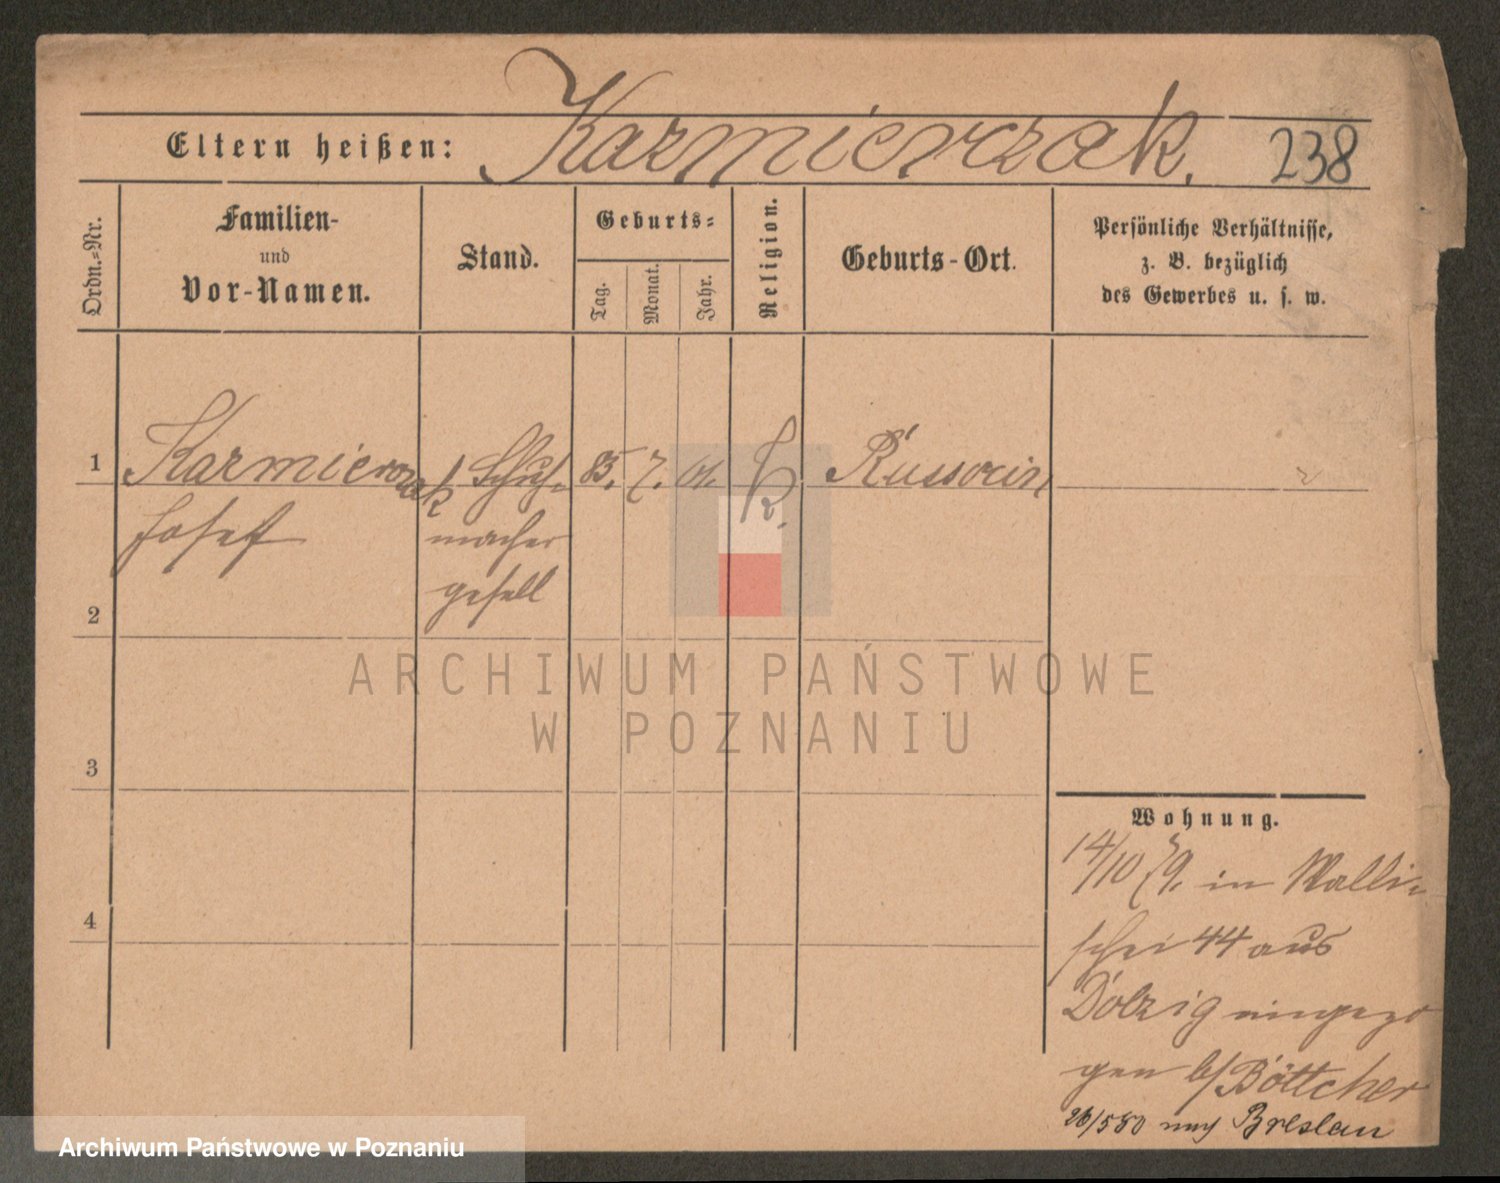 Eltern heißen: Kazmierczak. 238
Ordn.-Nr.
Familien-
und
Vor-Namen.
Stand.
Geburts-
Tag.
Monat.
Jahr.
Religion.
Geburts-Ort.
Persönliche Verhältnisse,
z. B. bezüglich
des Gewerbes u. s. w.
1 Kazmierczak Schuh- 7. Russocin
Josef macher
gesell
2
3
4
Wohnung.
14/10 79. in Walli-
schei 44 aus
Dolzig eingezo
gen b/ Böttcher
26/5 80 nach Breslau
ARCHIWUM PAŃSTWOWE
W POZNANIU
Archiwum Państwowe w Poznaniu